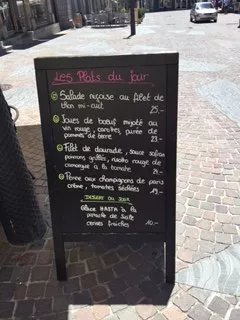 Les Plats du Jour
Salade niçoise au filet de
thon mi-cuit 25.-
Joues de bœuf mijoté au
vin rouge, carottes, purée de
pommes de terre 23.-
Filet de daurade, sauce safran
poivrons grillés, risotto rouge de
camargue à la tomate 24.-
Penne aux champignons de paris
crème, tomates séchées 19.-
Dessert du Jour
Glace MASTA à la
pistache de Sicile
cerises fraîches 10.-